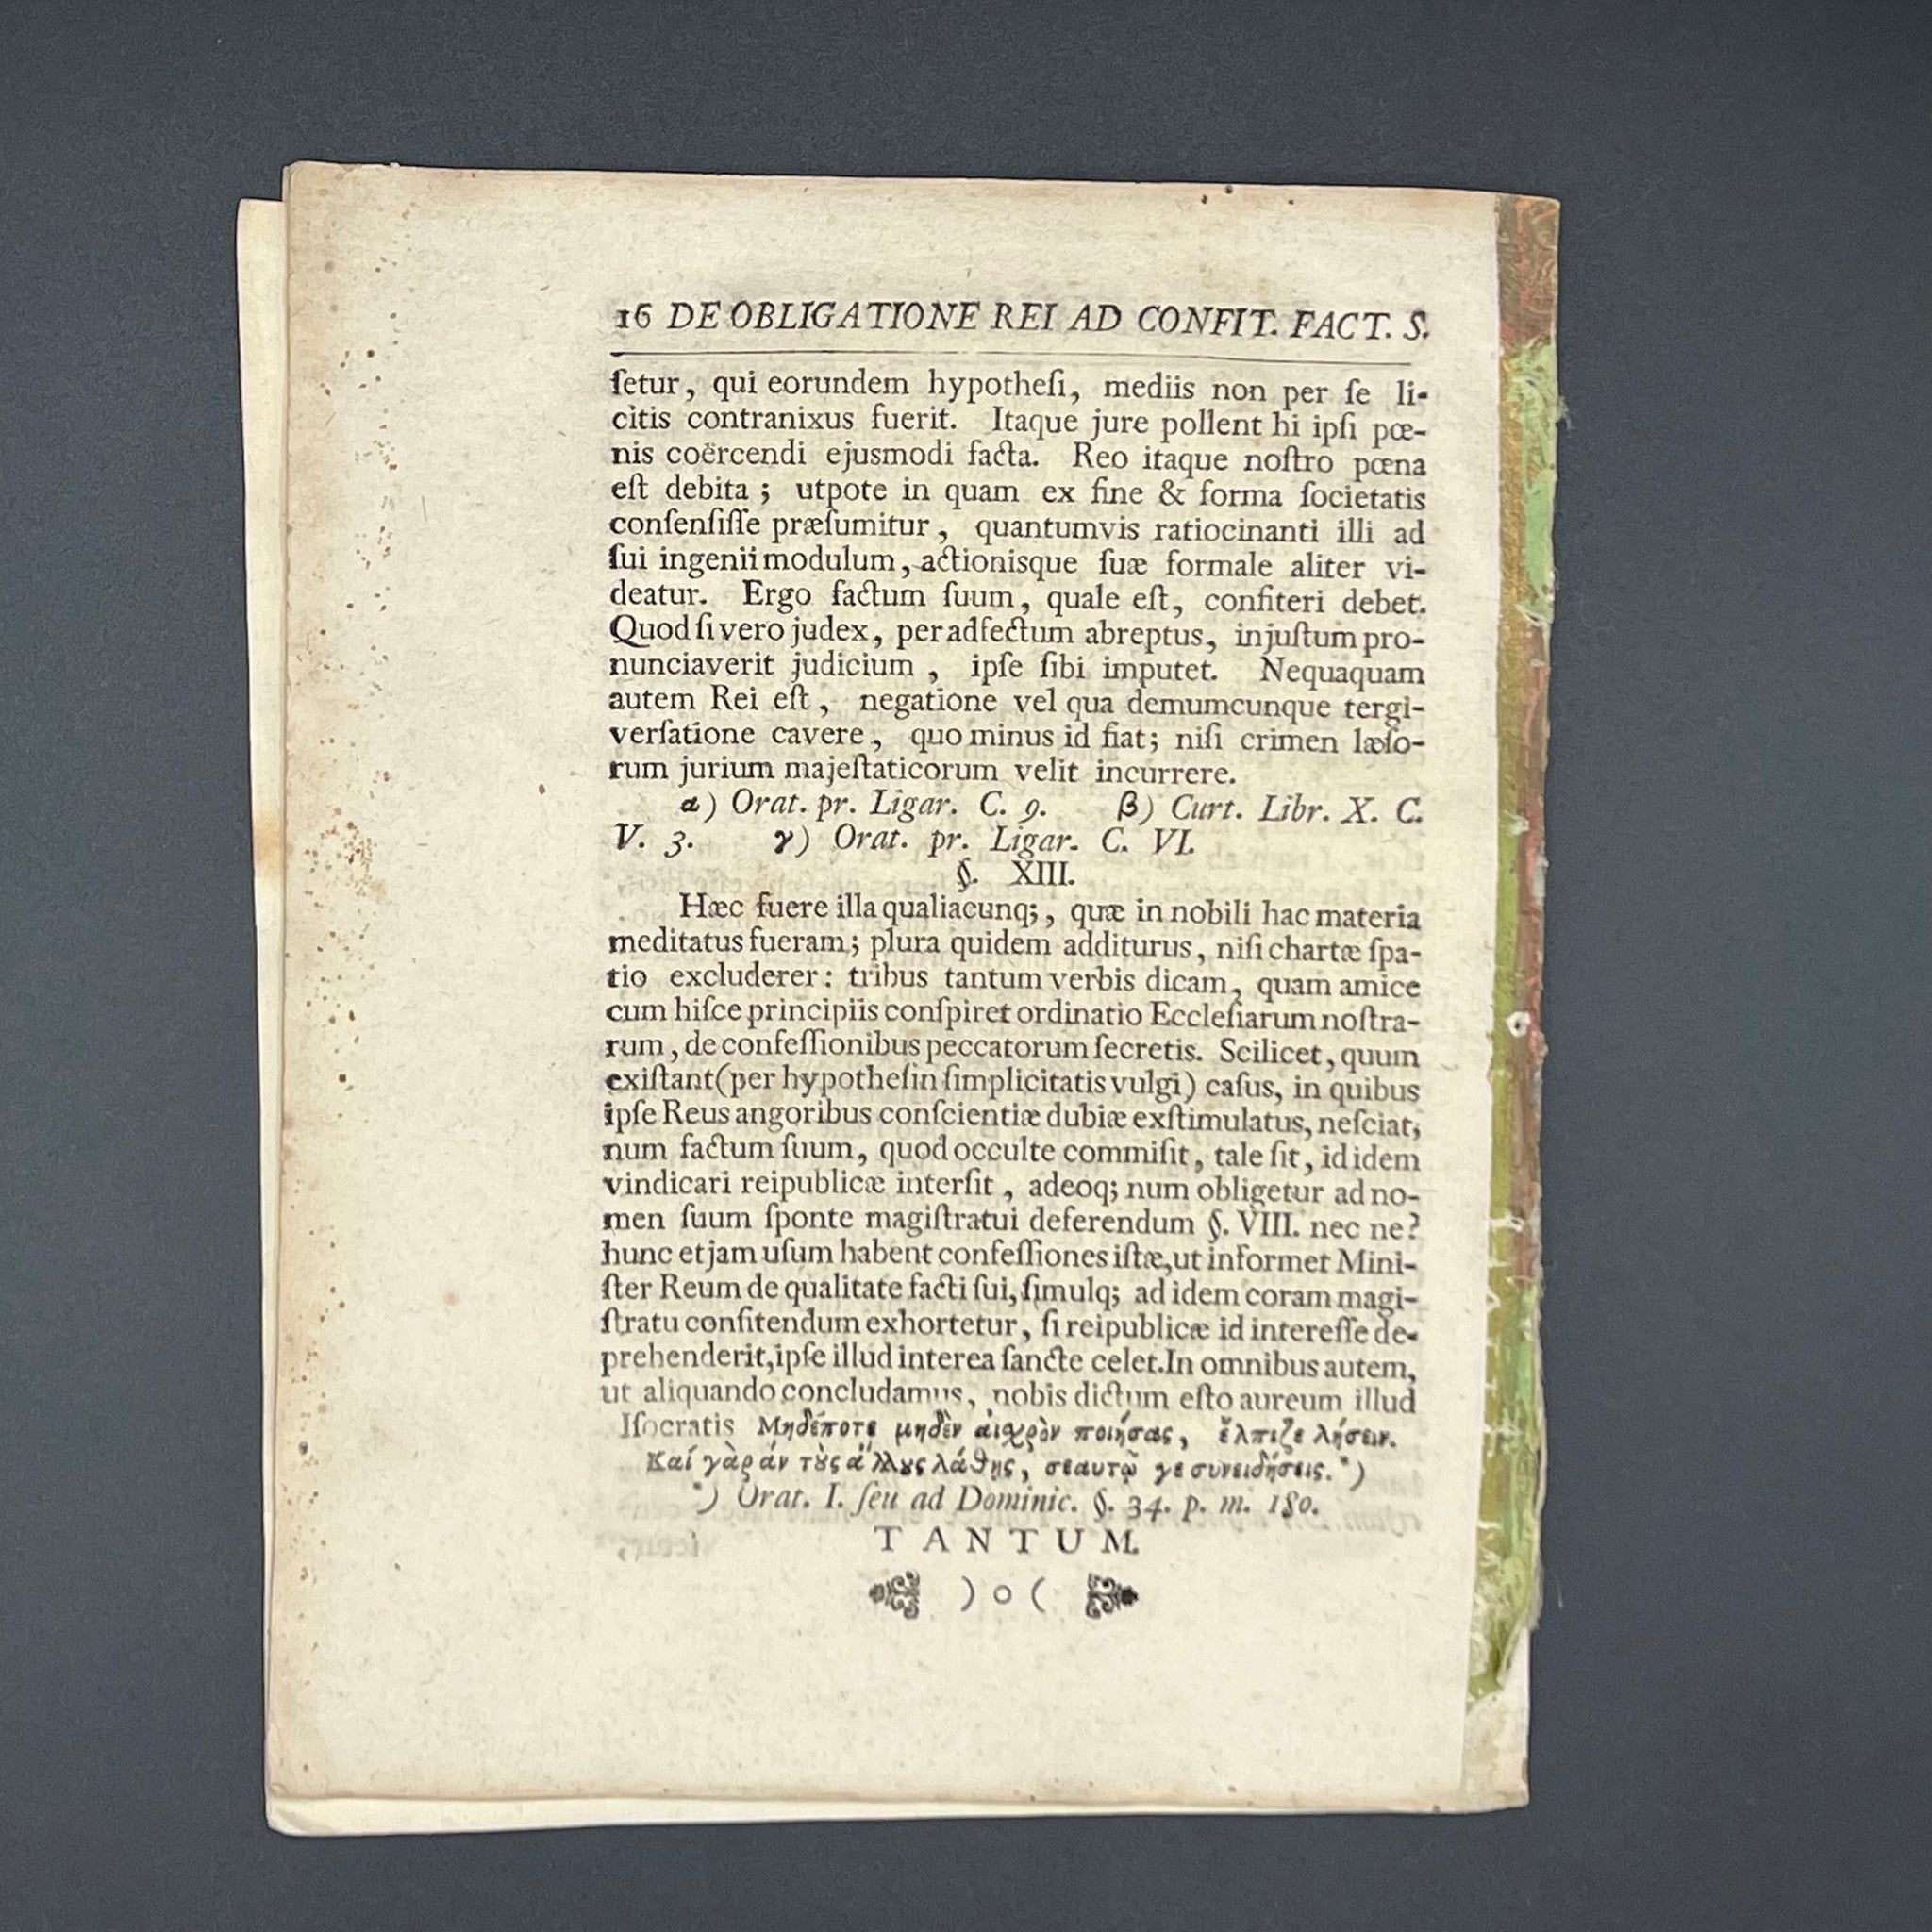 16 DE OBLIGATIONE REI AD CONFIT. FACT. S.
ſetur, qui eorundem hypotheſi, mediis non per ſe li-
citis contranixus fuerit. Itaque jure pollent hi ipſi pœ-
nis coërcendi ejusmodi facta. Reo itaque noſtro pœna
eſt debita; utpote in quam ex fine & forma ſocietatis
conſenſiſſe præſumitur, quantumvis ratiocinanti illi ad
ſui ingenii modulum, actionisque ſuæ formale aliter vi-
deatur. Ergo factum ſuum, quale eſt, confiteri debet.
Quod ſi vero judex, per adfectum abreptus, injuſtum pro-
nunciaverit judicium, ipſe ſibi imputet. Nequaquam
autem Rei eſt, negatione vel qua demumcunque tergi-
verſatione cavere, quo minus id fiat; niſi crimen læſo-
rum jurium majeſtaticorum velit incurrere.
α) Orat. pr. Ligar. C. 9. β) Curt. Libr. X. C.
V. 3. γ) Orat. pr. Ligar. C. VI.
§. XIII.
Hæc fuere illa qualiacunq;, quæ in nobili hac materia
meditatus fueram; plura quidem additurus, niſi chartæ ſpa-
tio excluderer: tribus tantum verbis dicam, quam amice
cum hiſce principiis conſpiret ordinatio Eccleſiarum noſtra-
rum, de confeſſionibus peccatorum ſecretis. Scilicet, quum
exiſtant (per hypotheſin ſimplicitatis vulgi) caſus, in quibus
ipſe Reus angoribus conſcientiæ dubiæ exſtimulatus, neſciat,
num factum ſuum, quod occulte commiſit, tale ſit, id idem
vindicari reipublicæ interſit, adeoq; num obligetur ad no-
men ſuum ſponte magiſtratui deferendum §. VIII. nec ne?
hunc etjam uſum habent confeſſiones iſtæ, ut informet Mini-
ſter Reum de qualitate facti ſui, ſimulq; ad idem coram magi-
ſtratu confitendum exhortetur, ſi reipublicæ id intereſſe de-
prehenderit, ipſe illud interea ſancte celet. In omnibus autem,
ut aliquando concludamus, nobis dictum eſto aureum illud
Iſocratis Μηδέποτε μηδὲν αἰχρὸν ποιήσας, ἔλπιζε λήσειν.
Καί γὰρ άν τȣ̀ς ἄλλȣς λάθης, σεαυτῷ γε συνειδήσεις.*)
*) Orat. I. ſeu ad Dominic. §. 34. p. m. 180.
TANTUM.
) o (